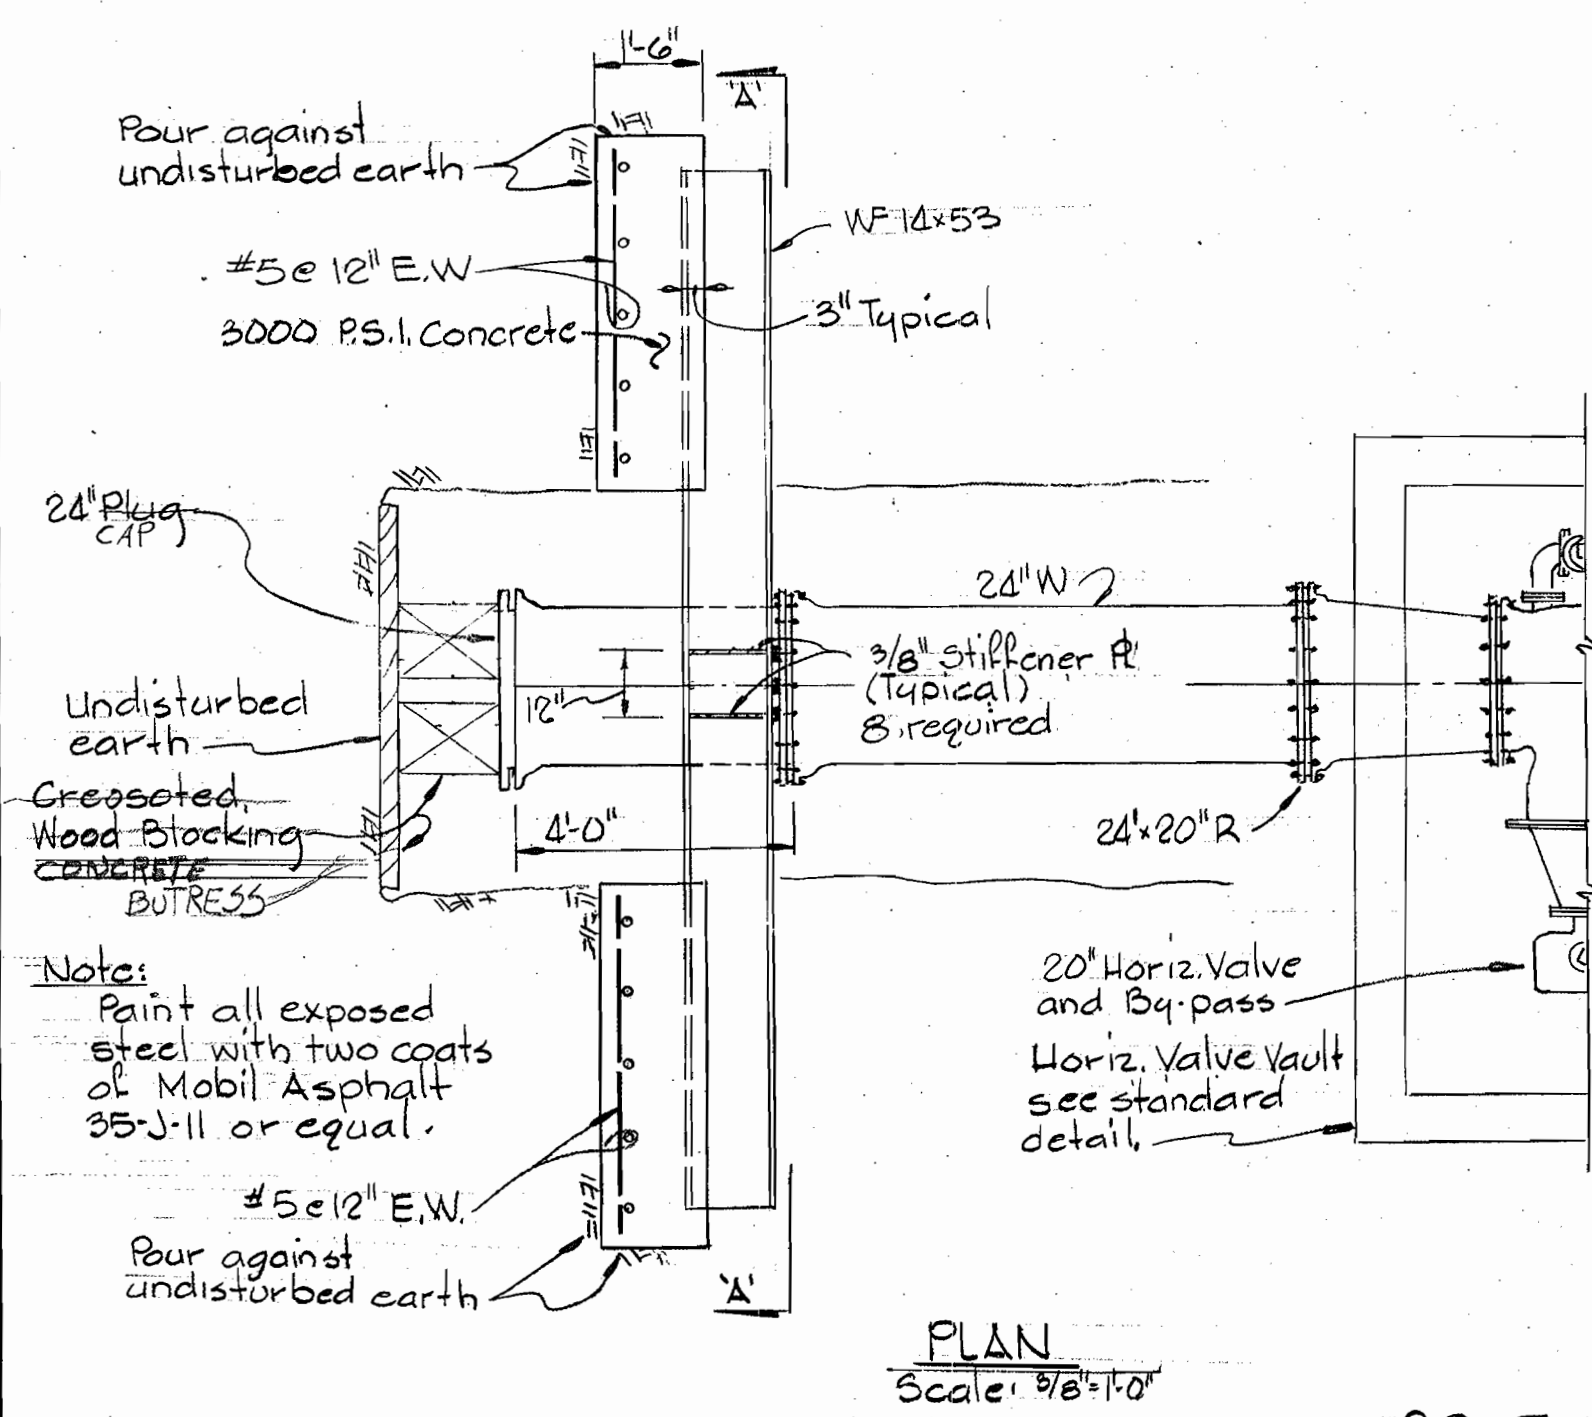 1'-6"
'A'
Pour against
undisturbed earth
WF 14x53
#5 @ 12" E.W
3" Typical
3000 P.S.I. Concrete
24" Plug
CAP
24" W
3/8" Stiffener PL
(Typical)
8 required
12"
Undisturbed
earth
Creosoted
Wood Blocking
CONCRETE
BUTRESS
4'-0"
24"x20" R
Note:
Paint all exposed
steel with two coats
of Mobil Asphalt
35-J-11 or equal.
20" Horiz. Valve
and By-pass
Horiz. Valve Vault
see standard
detail.
#5 @ 12" E.W.
Pour against
undisturbed earth
'A'
PLAN
Scale: 3/8"=1'-0"